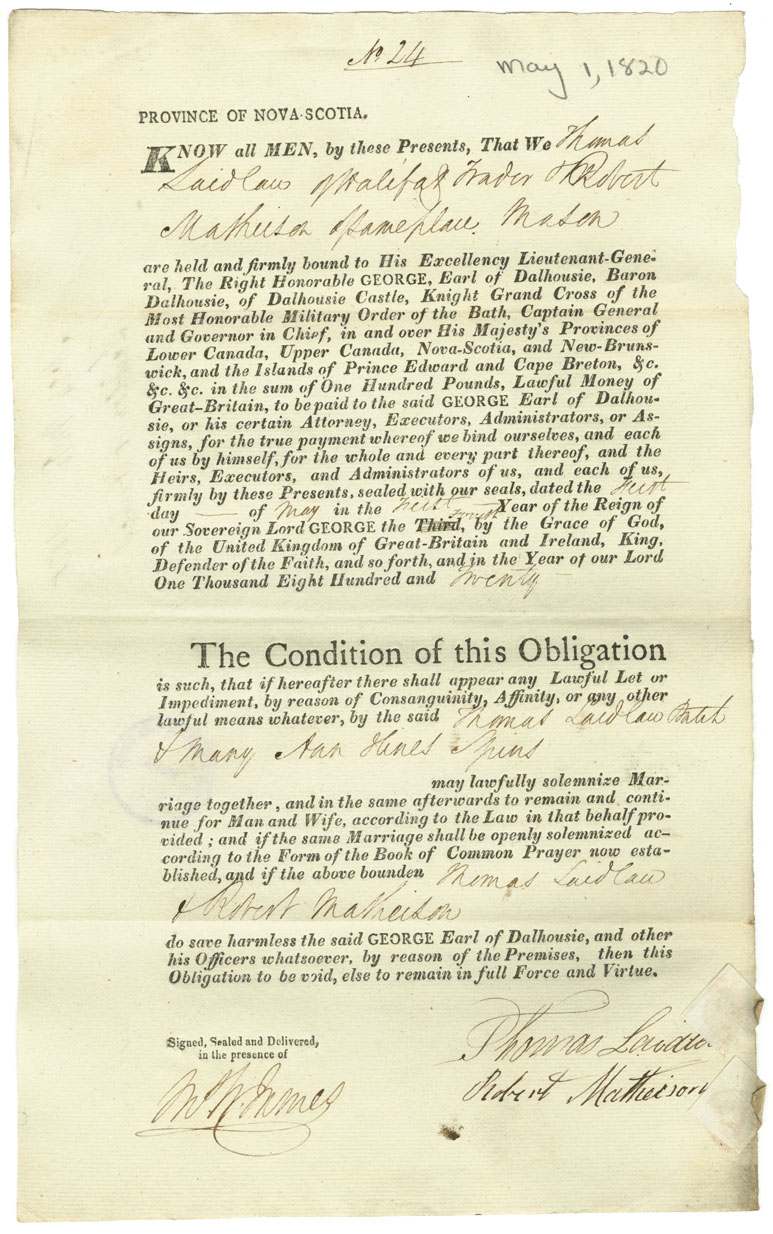 No 24
May 1, 1820
PROVINCE OF NOVA-SCOTIA.
KNOW all MEN, by these Presents, That We Thomas
Laidlaw of Halifax Trader & Robert
Matheison of same place. Mason
are held and firmly bound to His Excellency Lieutenant-Gene-
ral, The Right Honorable GEORGE, Earl of Dalhousie, Baron
Dalhousie, of Dalhousie Castle, Knight Grand Cross of the
Most Honorable Military Order of the Bath, Captain General
and Governor in Chief, in and over His Majesty's Provinces of
Lower Canada, Upper Canada, Nova-Scotia, and New-Bruns-
wick, and the Islands of Prince Edward and Cape Breton, &c.
&c. &c. in the sum of One Hundred Pounds, Lawful Money of
Great-Britain, to be paid to the said GEORGE Earl of Dalhou-
sie, or his certain Attorney, Executors, Administrators, or As-
signs, for the true payment whereof we bind ourselves, and each
of us by himself, for the whole and every part thereof, and the
Heirs, Executors, and Administrators of us, and each of us,
firmly by these Presents, sealed with our seals, dated the First
day — of May in the First Year of the Reign of
our Sovereign Lord GEORGE the Third, Fourth by the Grace of God,
of the United Kingdom of Great-Britain and Ireland, King,
Defender of the Faith, and so forth, and in the Year of our Lord
One Thousand Eight Hundred and Twenty —
The Condition of this Obligation
is such, that if hereafter there shall appear any Lawful Let or
Impediment, by reason of Consanguinity, Affinity, or any other
lawful means whatever, by the said Thomas Laidlaw Batch
& Mary Ann Hines Spins
may lawfully solemnize Mar-
riage together, and in the same afterwards to remain and conti-
nue for Man and Wife, according to the Law in that behalf pro-
vided; and if the same Marriage shall be openly solemnized ac-
cording to the Form of the Book of Common Prayer now esta-
blished, and if the above bounden Thomas Laidlaw
& Robert Matheison
do save harmless the said GEORGE Earl of Dalhousie, and other
his Officers whatsoever, by reason of the Premises, then this
Obligation to be void, else to remain in full Force and Virtue.
Signed, Sealed and Delivered,
in the presence of
Thomas Laidla
Robert Matheison